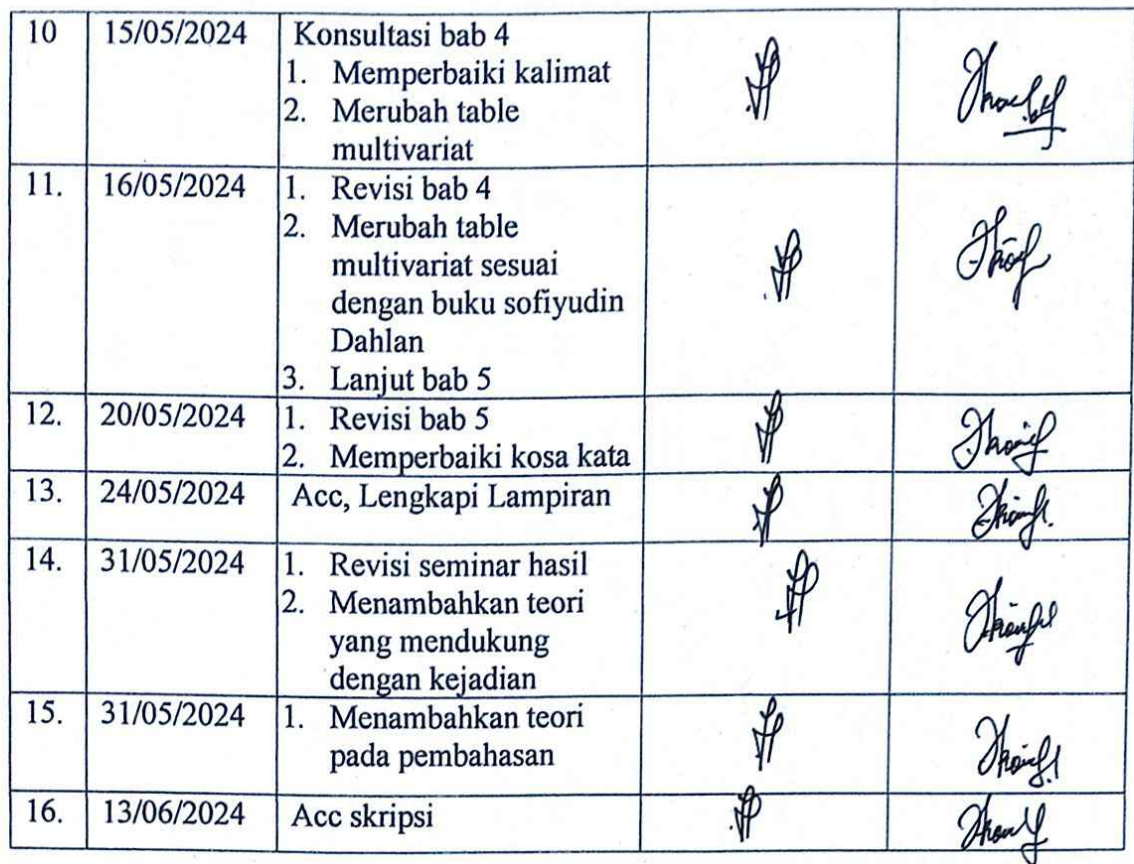 10 15/05/2024 Konsultasi bab 4
1. Memperbaiki kalimat
2. Merubah table
multivariat
11. 16/05/2024 1. Revisi bab 4
2. Merubah table
multivariat sesuai
dengan buku sofiyudin
Dahlan
3. Lanjut bab 5
12. 20/05/2024 1. Revisi bab 5
2. Memperbaiki kosa kata
13. 24/05/2024 Acc, Lengkapi Lampiran
14. 31/05/2024 1. Revisi seminar hasil
2. Menambahkan teori
yang mendukung
dengan kejadian
15. 31/05/2024 1. Menambahkan teori
pada pembahasan
16. 13/06/2024 Acc skripsi